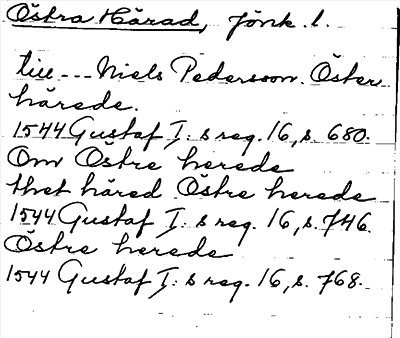 Östra Härad, Jönk. l.
till --- Niels Pedersson. Öster
härede.
1544 Gustaf I:s reg. 16, s. 680.
Om Östre herede
thet häred Östre herede
1544 Gustaf I:s reg. 16, s. 746.
Östre herede
1544 Gustaf I:s reg. 16, s. 768.